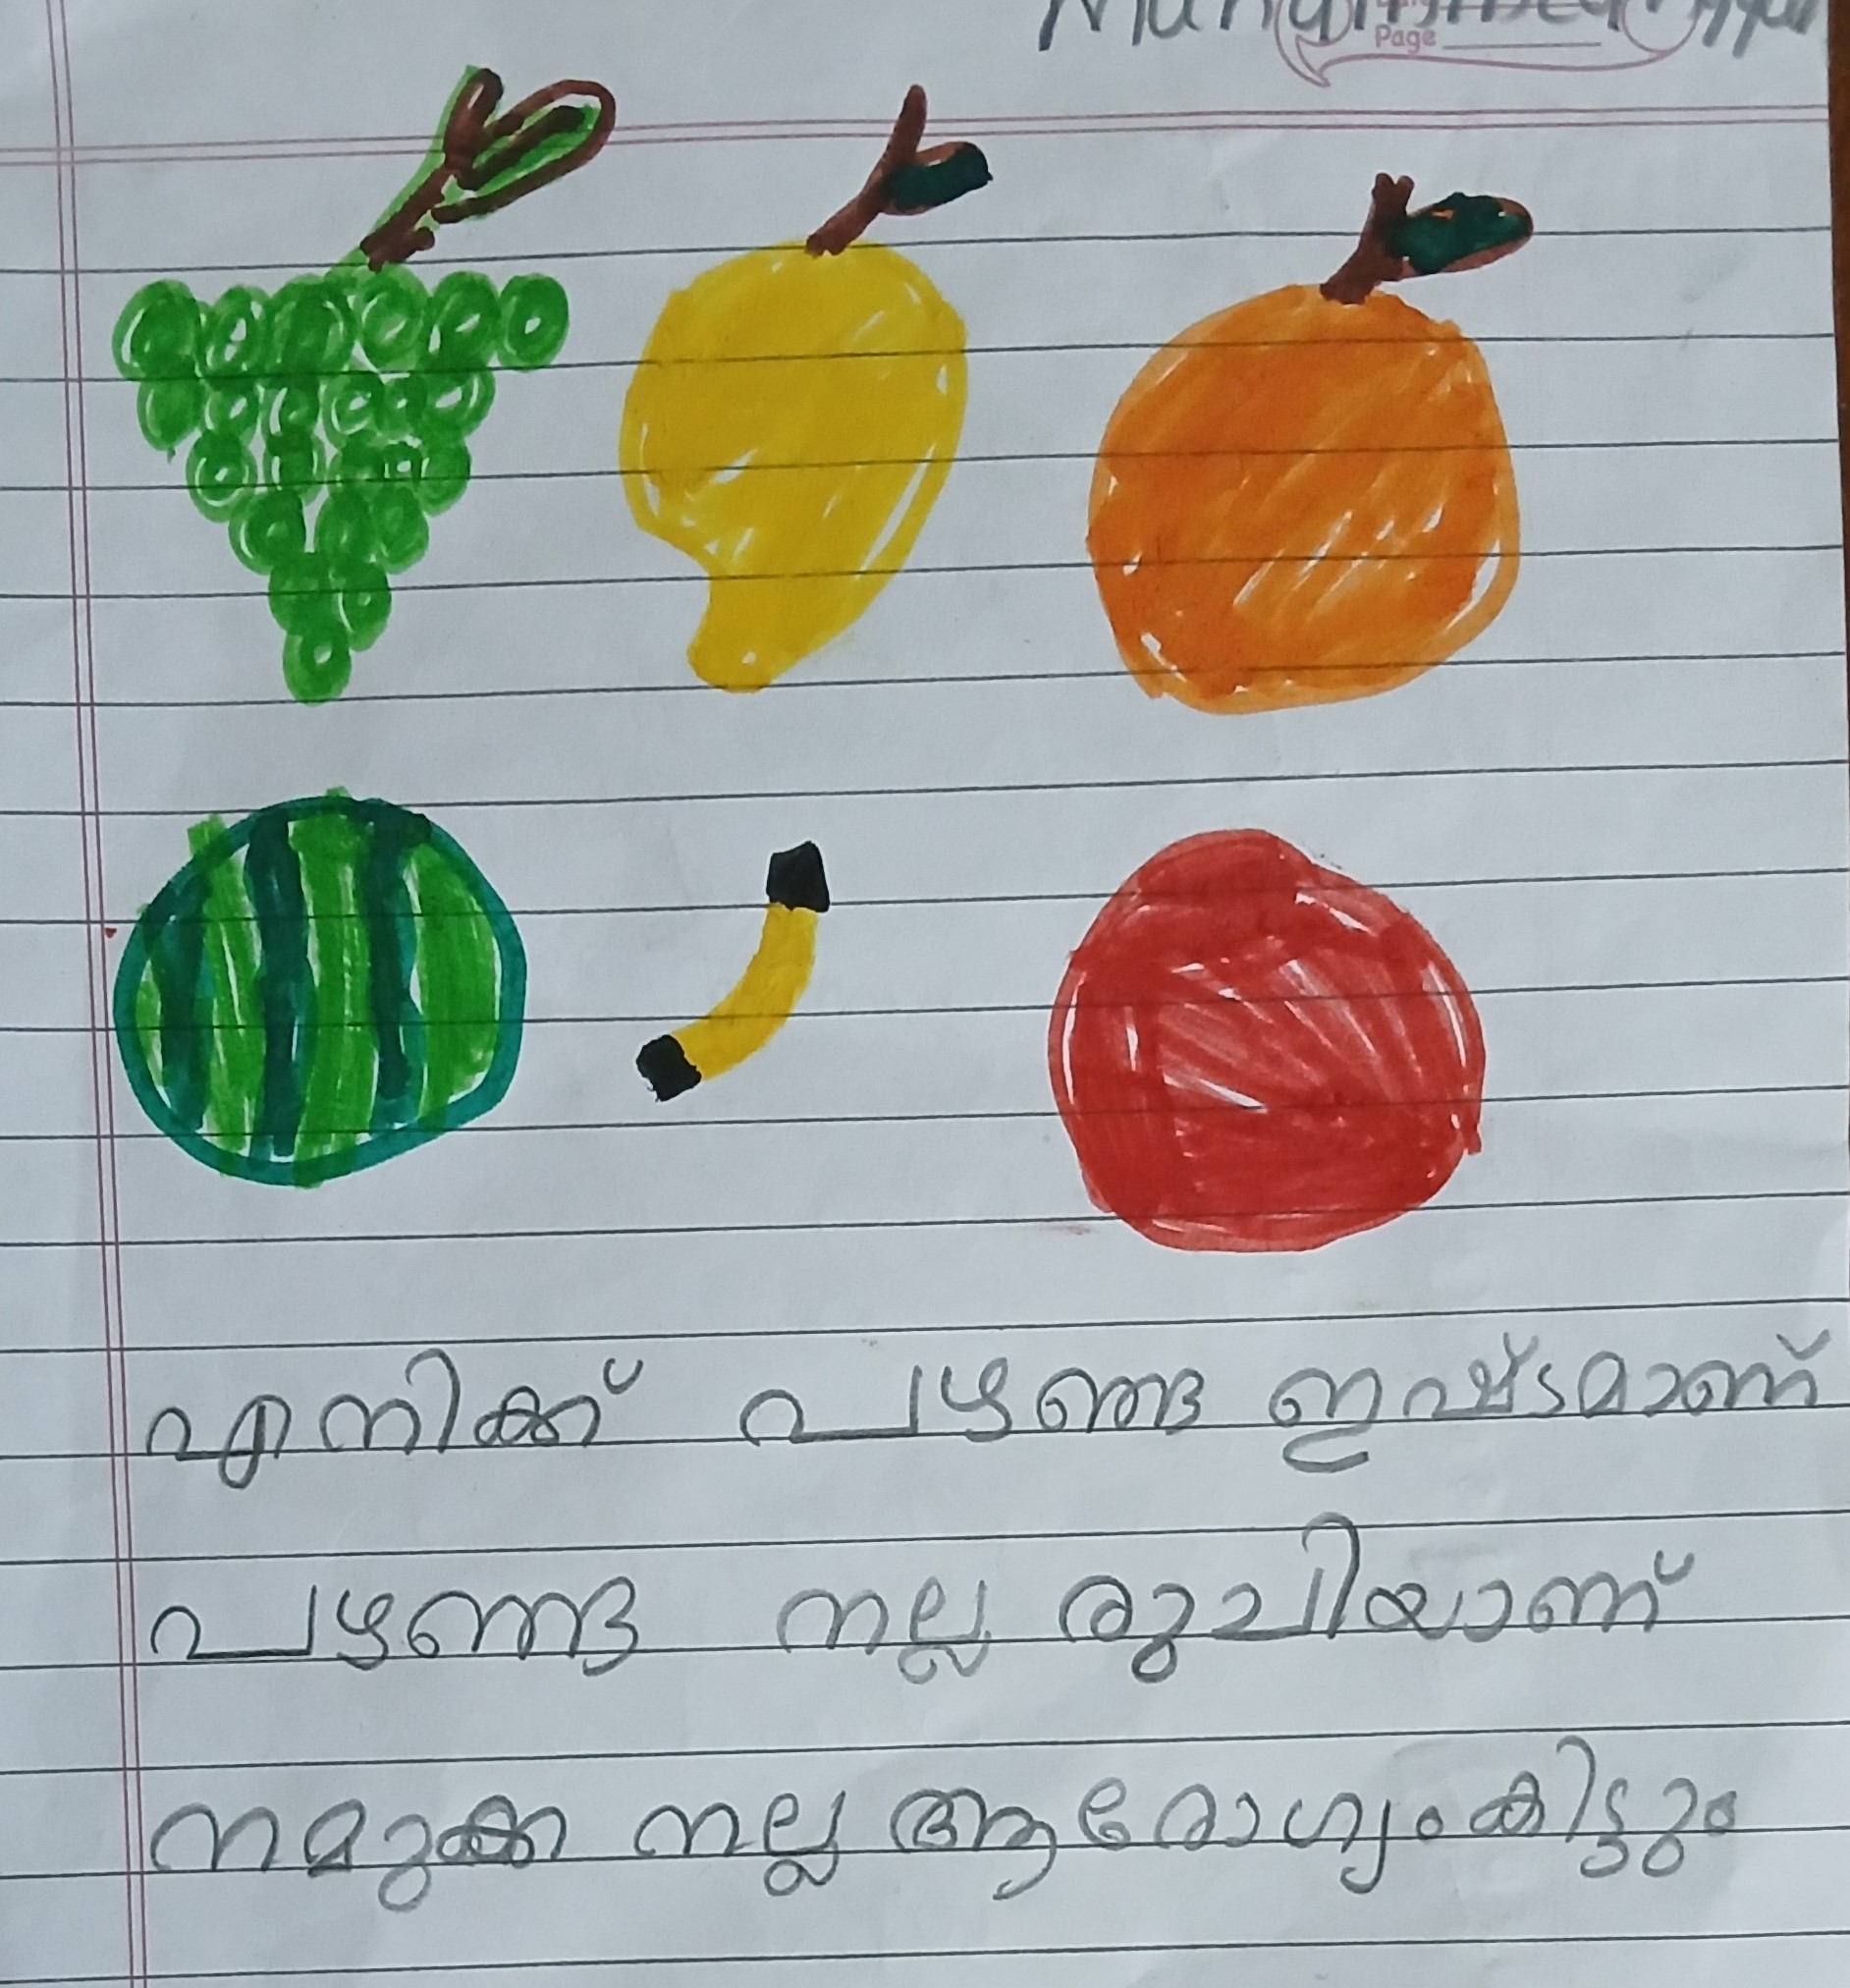 Page
എനിക്ക് പഴങ്ങ ഇഷ്ടമാണ്
പഴങ്ങ നല്ല രുചിയാണ്
നമുക്ക നല്ല ആരോഗ്യംകിട്ടും